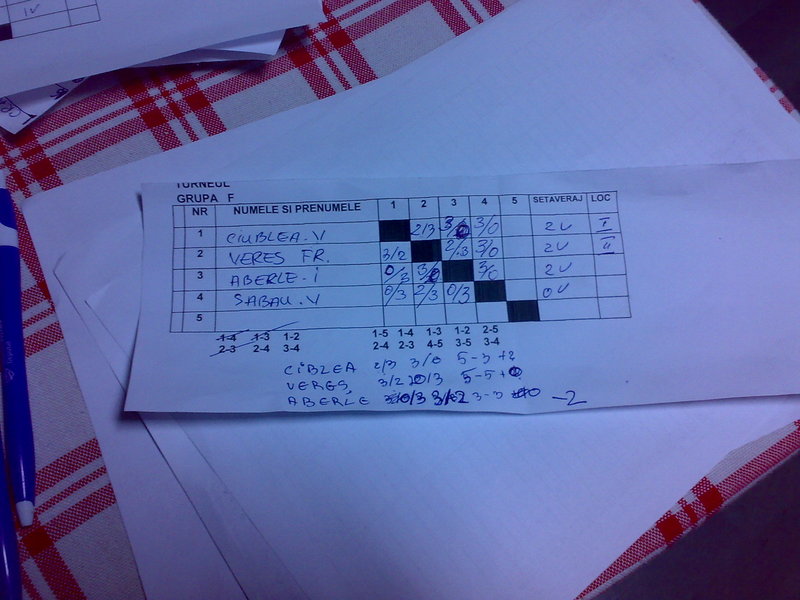 IV
TURNEUL
GRUPA F
NR NUMELE SI PRENUMELE 1 2 3 4 5 SETAVERAJ LOC
1 CIUBLEA.V 2/3 3/0 3/0 2V I
2 VERES FR. 3/2 2/3 3/0 2V II
3 ABERLE.I 0/3 3/2 3/0 2V
4 SABAU.V 0/3 2/3 0/3 0V
5
1-4 1-3 1-2 1-5 1-4 1-3 1-2 2-5
2-3 2-4 3-4 2-4 2-3 4-5 3-5 3-4
CIBLEA 2/3 3/0 5-3 +2
VERES 3/2 2/3 5-5 +0
ABERLE 0/3 3/2 3-3 -2